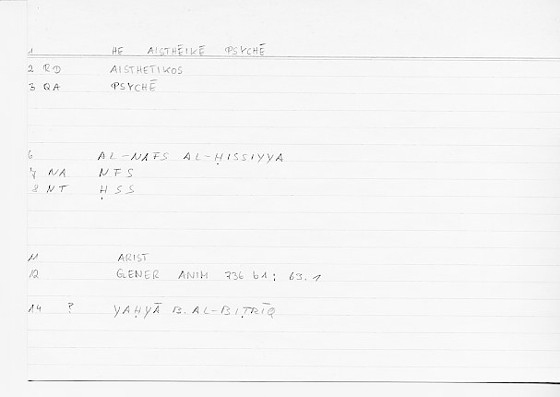 1 HE AISTHĒIKĒ PSYCHĒ
2 RD AISTHETIKOS
3 QA PSYCHĒ
6 AL-NAFS AL-ḤISSIYYA
7 NA NFS
8 NT ḤSS
11 ARIST
12 GENER ANIM 736 b1; 63.1
14 ? YAḤYĀ B. AL-BIṬRĪQ